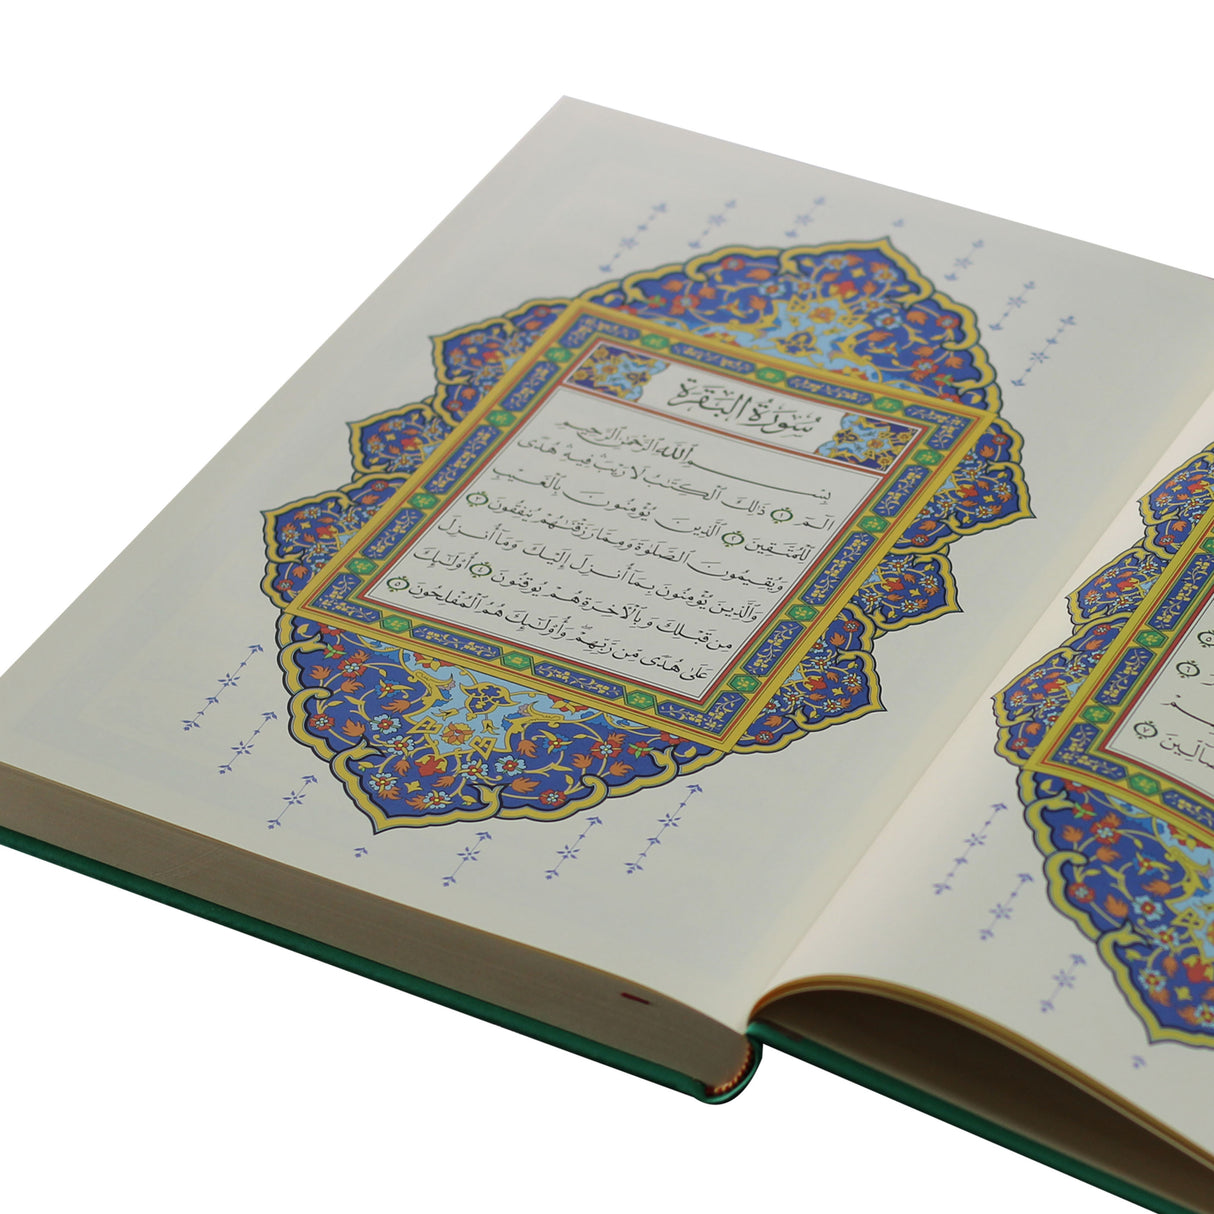 سُورَةُ البَقَرَةِ
بِسْمِ ٱللَّهِ ٱلرَّحْمَٰنِ ٱلرَّحِيمِ
الٓمٓ ١ ذَٰلِكَ ٱلْكِتَٰبُ لَا رَيْبَ ۛ فِيهِ ۛ هُدًى
لِّلْمُتَّقِينَ ٢ ٱلَّذِينَ يُؤْمِنُونَ بِٱلْغَيْبِ
وَيُقِيمُونَ ٱلصَّلَوٰةَ وَمِمَّا رَزَقْنَٰهُمْ يُنفِقُونَ ٣
وَٱلَّذِينَ يُؤْمِنُونَ بِمَآ أُنزِلَ إِلَيْكَ وَمَآ أُنزِلَ
مِن قَبْلِكَ وَبِٱلْـَٔاخِرَةِ هُمْ يُوقِنُونَ ٤ أُو۟لَٰٓئِكَ
عَلَىٰ هُدًى مِّن رَّبِّهِمْ ۖ وَأُو۟لَٰٓئِكَ هُمُ ٱلْمُفْلِحُونَ ٥